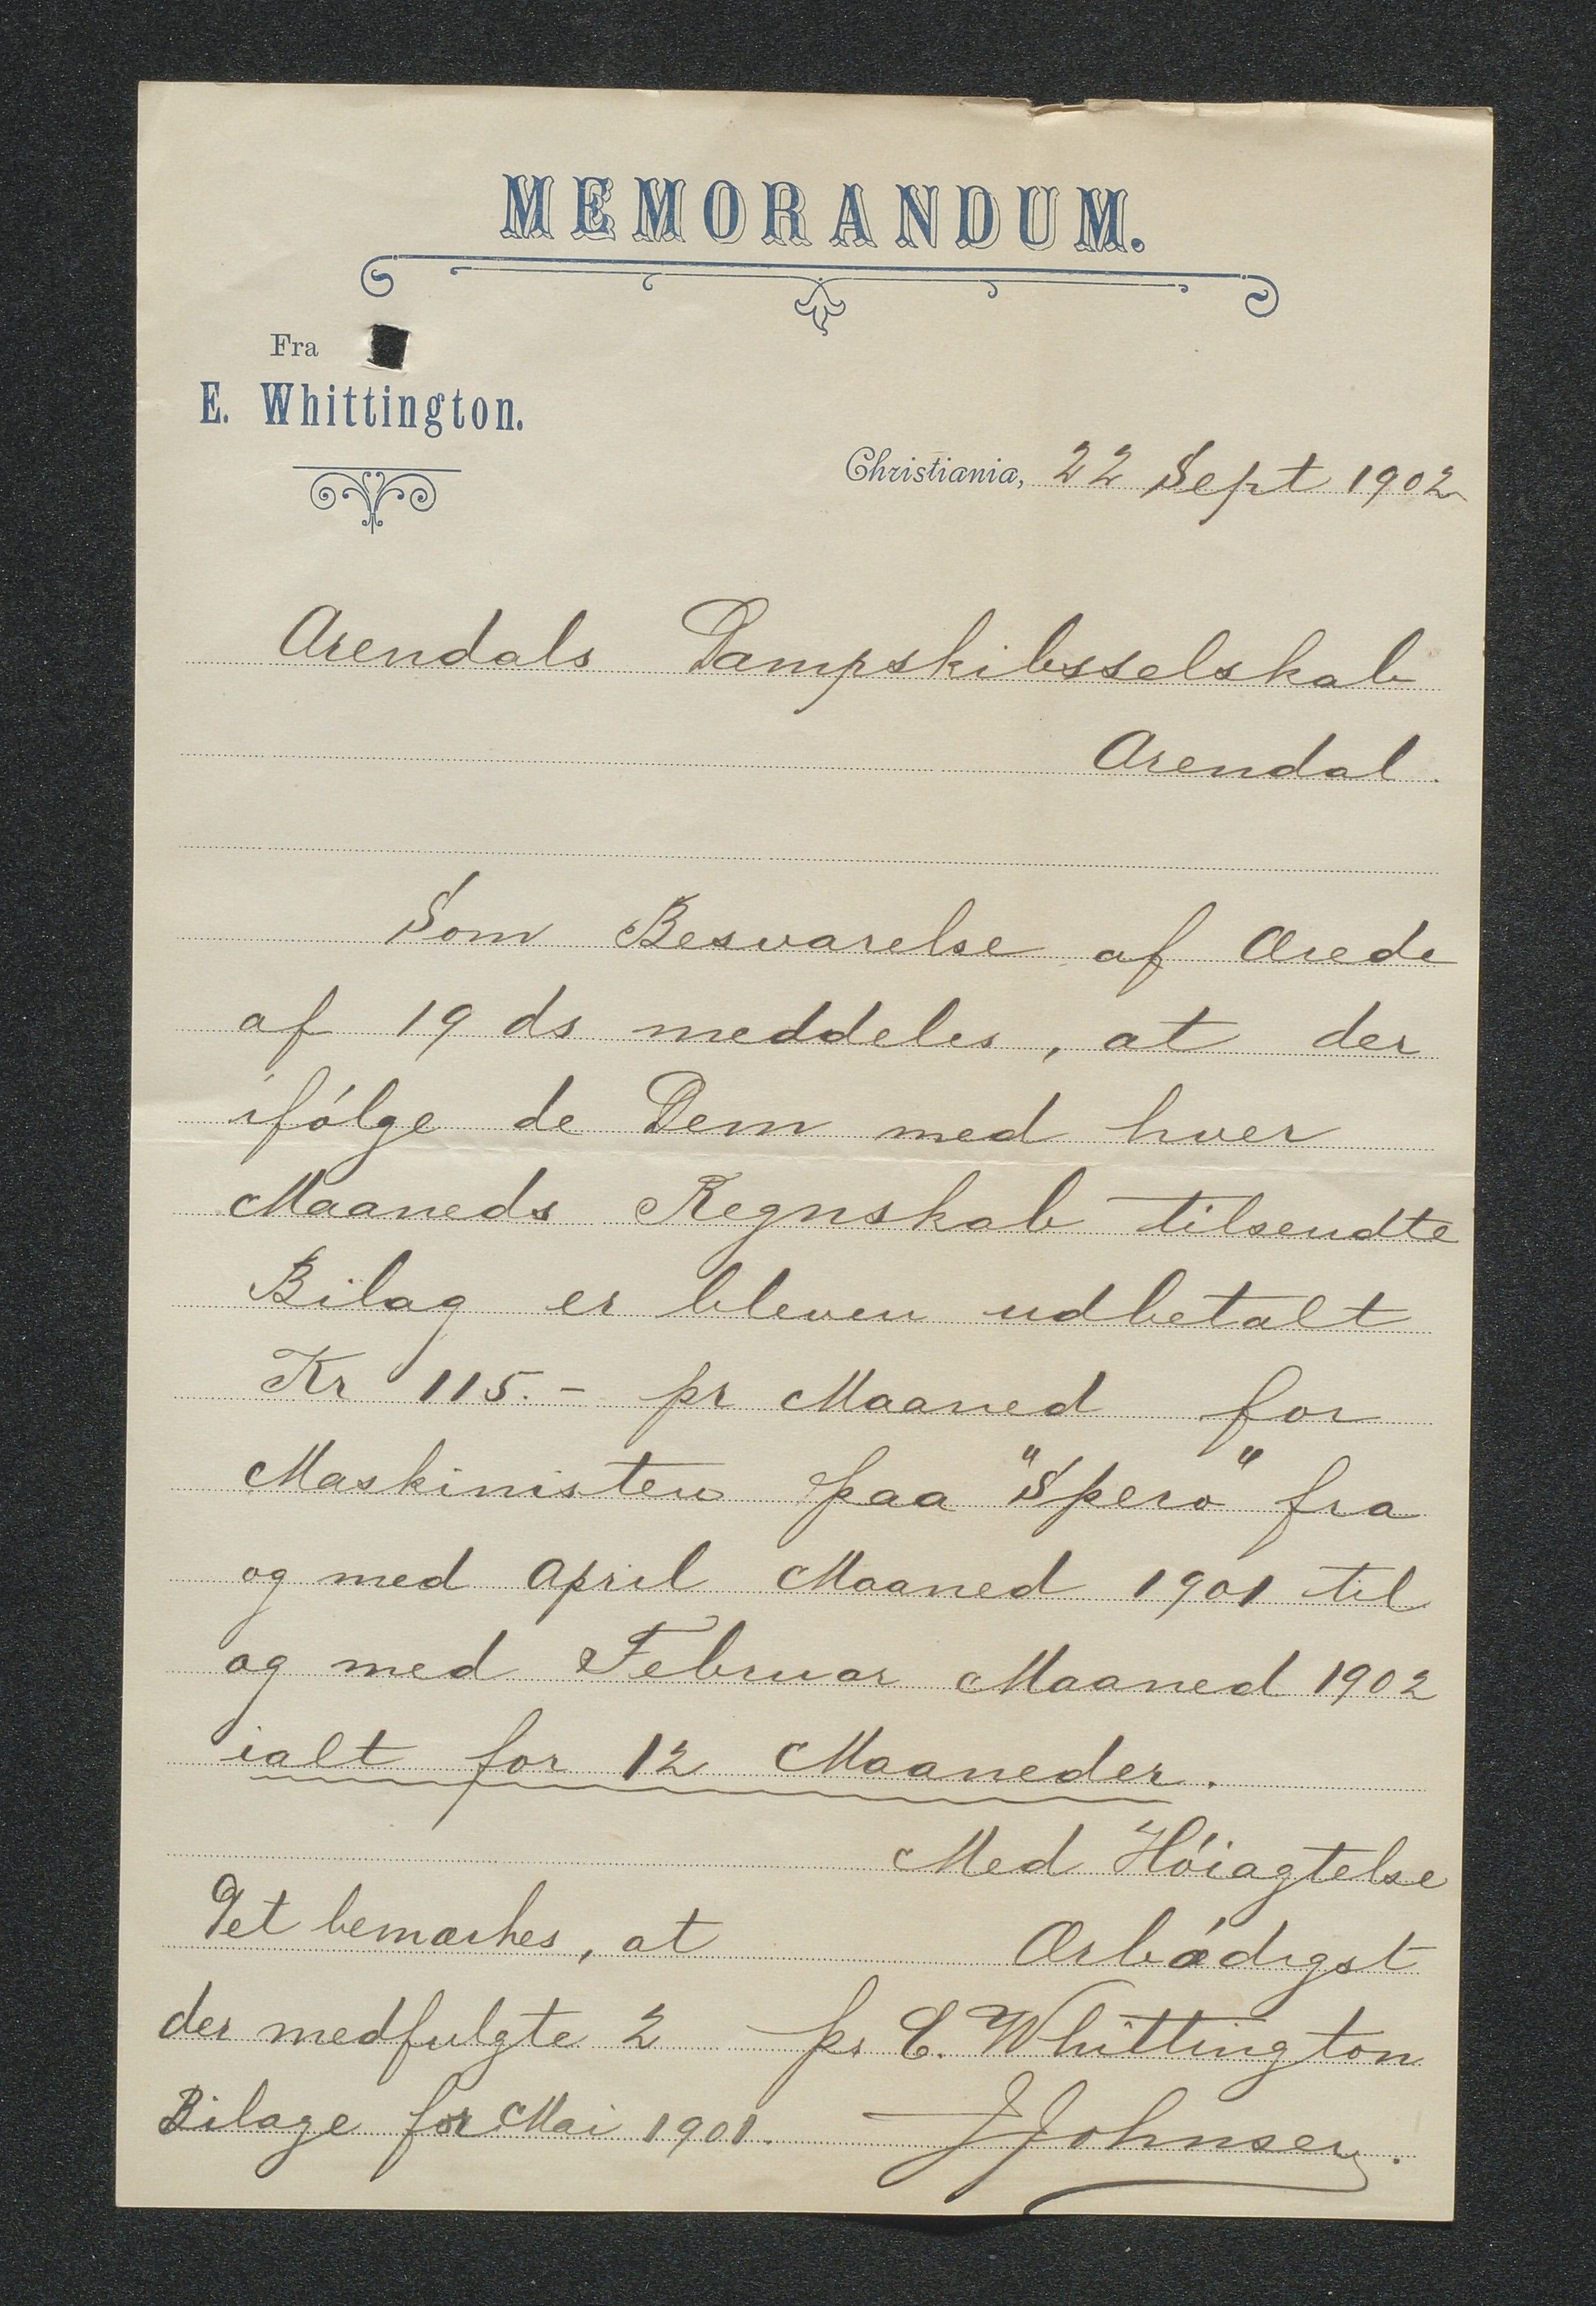 MEMORANDUM.
Fra
E. Whittington.
Christiania, 22 Sept 1902
Arendals Dampskibsselskab
Arendal.
Som Besvarelse af Ærede
af 19 ds meddeles, at der
ifólge de Dem med hver
Maaneds Regnskab tilsendte
Bilag er bleven udbetalt
Kr 115.- pr Maaned for
Maskinisten paa "Spero" fra
og med April Maaned 1901 til
og med Februar Maaned 1902
ialt for 12 Maaneder.
Med Hóiagtelse
Ærbódigst
pr E. Whittington
JJohnsen.
Det bemærkes, at
der medfulgte 2
Bilage for Mai 1901.